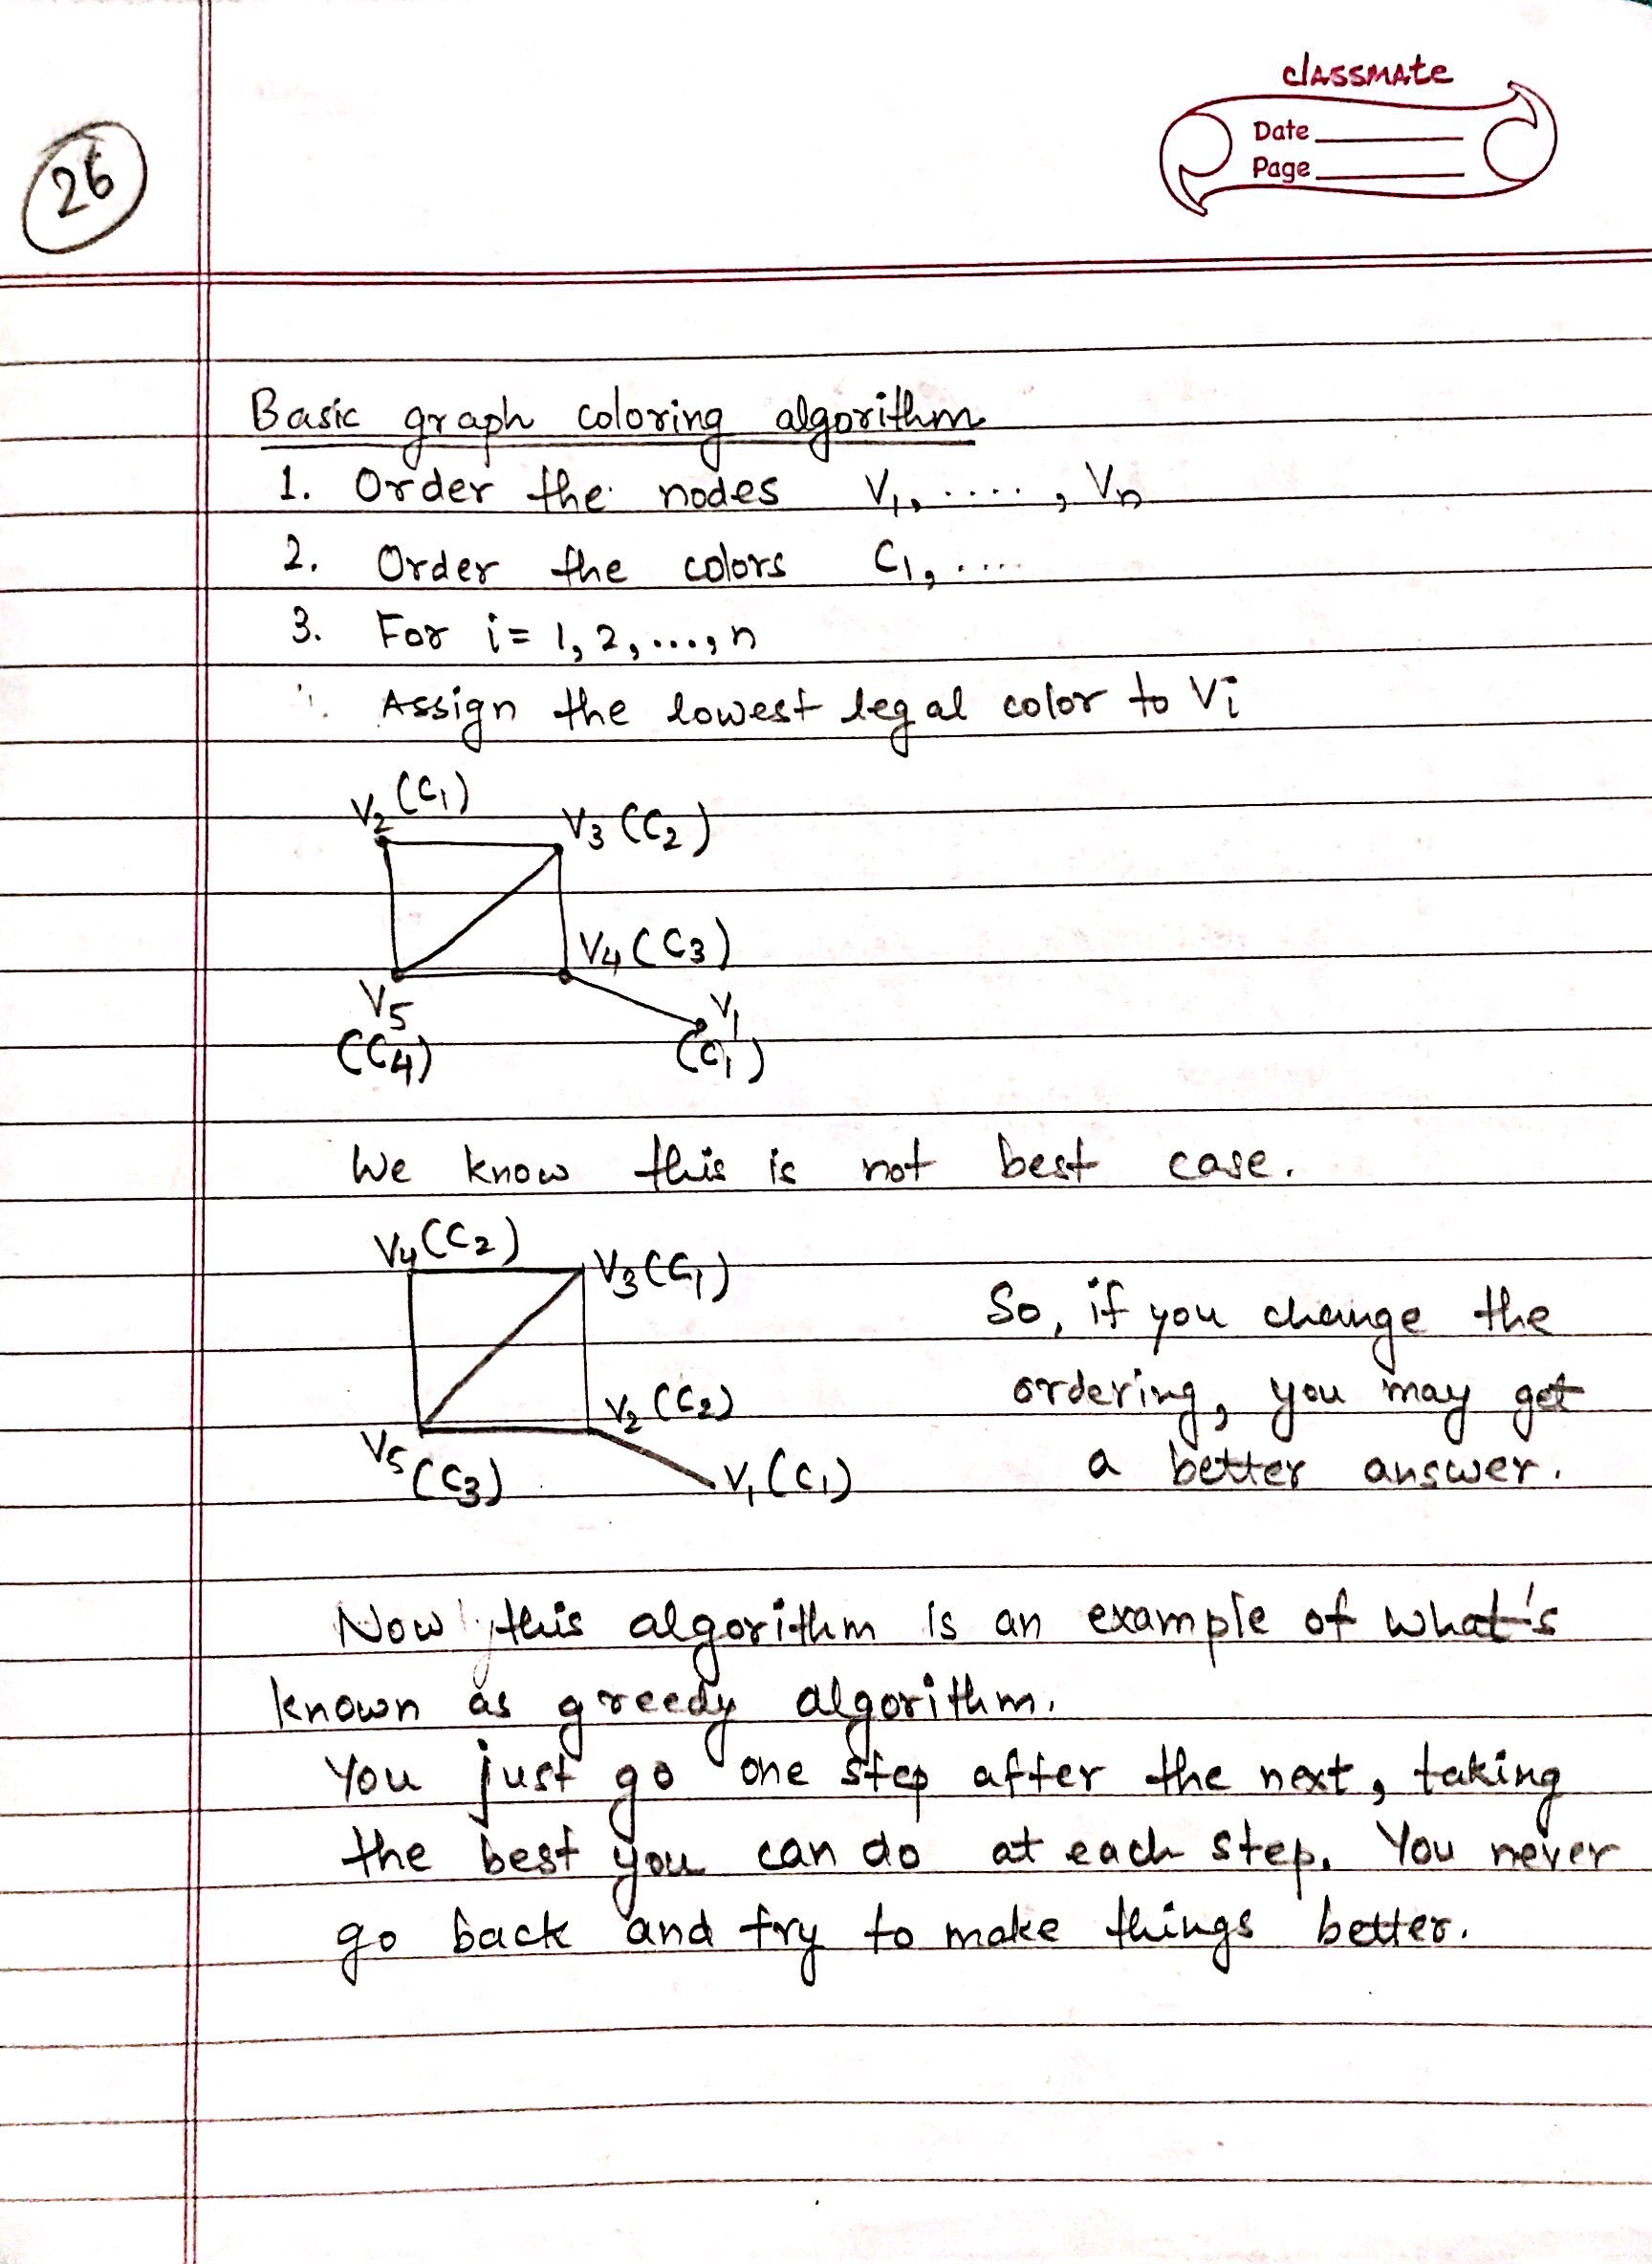 classmate
Date
Page
26
Basic graph coloring algorithm
1. Order the nodes V1, ....., Vn
2. Order the colors C1, ....
3. For i = 1, 2, ..., n
Assign the lowest legal color to Vi
V2 (C1)
V3 (C2)
V4 (C3)
V5
V1
(C4)
(C1)
We know this is not best case.
V4 (C2)
V3 (C1)
So, if you change the
ordering, you may get
V2 (C2)
V5 (C3)
V1 (C1)
a better answer.
Now, this algorithm is an example of what's
known as greedy algorithm.
You just go one step after the next, taking
the best you can do at each step. You never
go back and try to make things better.